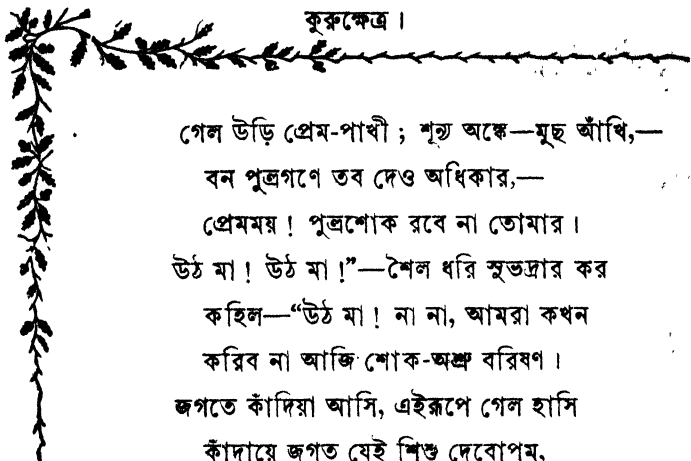 কুরুক্ষেত্র ।
গেল উড়ি প্রেম-পাখী ; শূন্য অঙ্কে—মুছ আঁখি,—
বন পুত্রগণে তব দেও অধিকার,—
প্রেমময় ! পুত্রশোক রবে না তোমার ।
উঠ মা ! উঠ মা !”—শৈল ধরি সুভদ্রার কর
কহিল—“উঠ মা ! না না, আমরা কখন
করিব না আজি শোক-অশ্রু বরিষণ ।
জগতে কাঁদিয়া আসি, এইরূপে গেল হাসি
কাঁদায়ে জগত যেই শিশু দেবোপম,